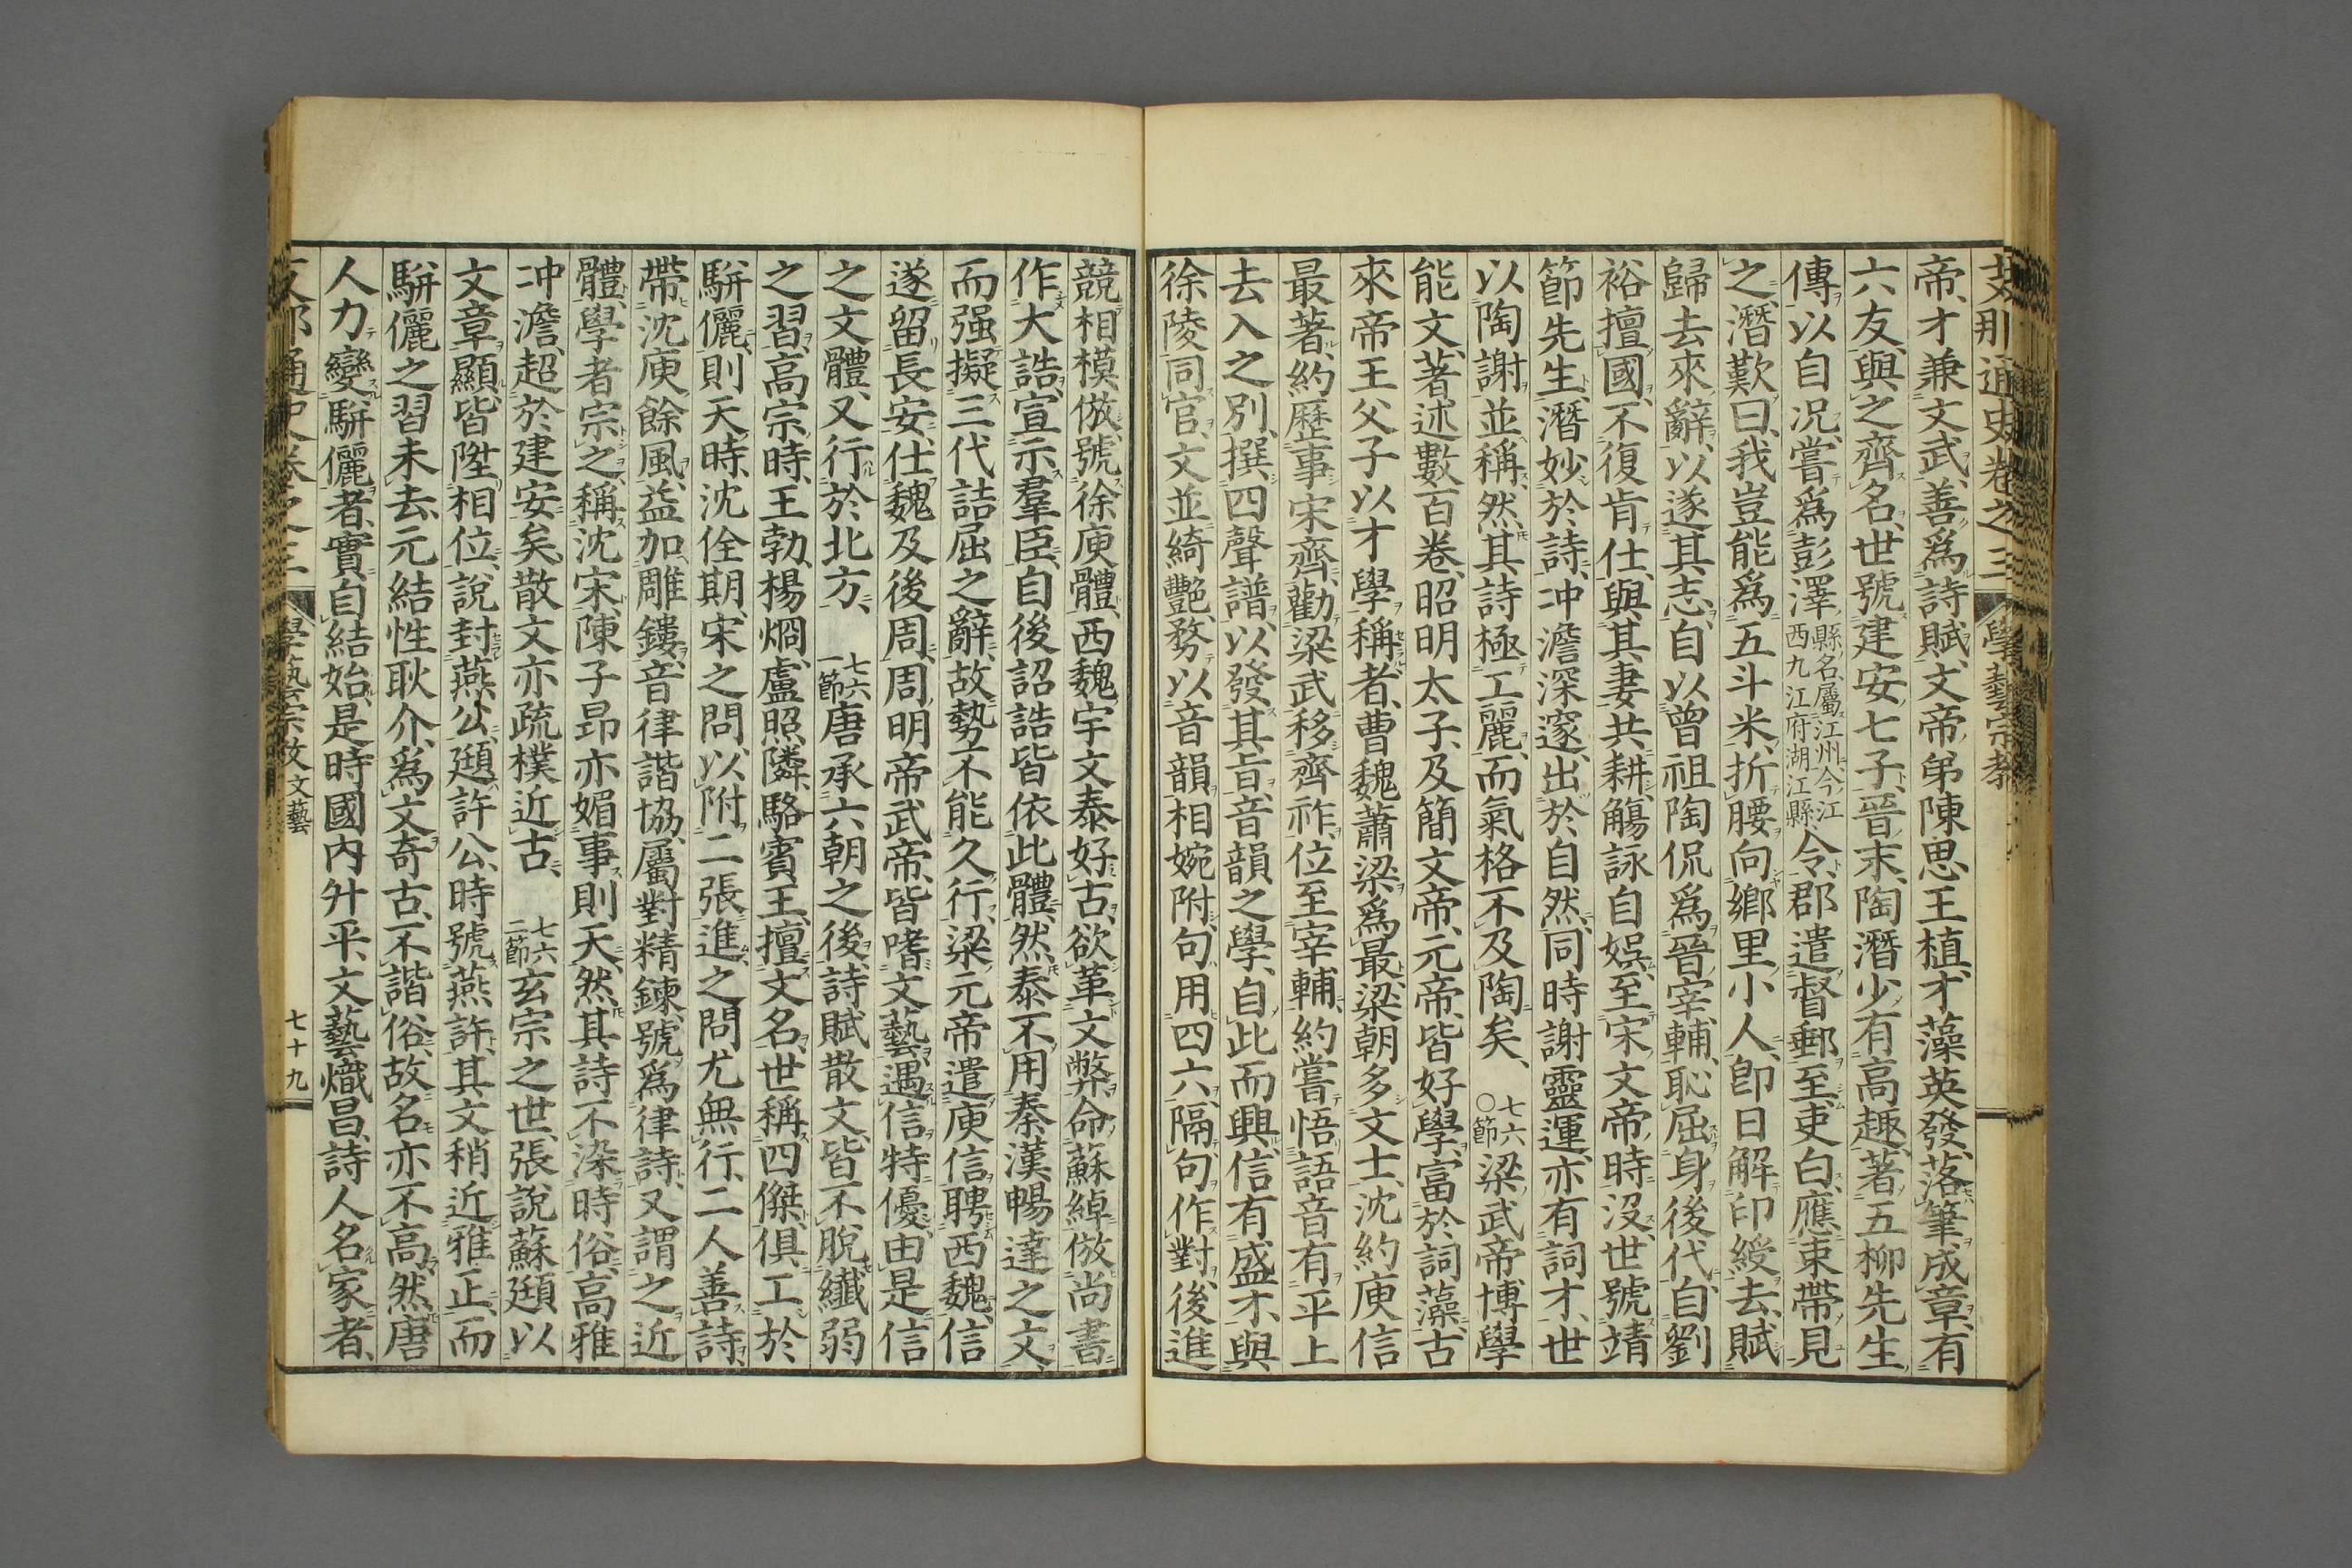 支那通史卷之三 學藝宗教
帝、才兼文武、善爲詩賦、文帝弟陳思王植、才藻英發、落筆成章、有
六友、與之齊名、世號建安七子、晉末、陶潛少有高趣、著五柳先生
傳以自况、嘗爲彭澤縣名、屬江州、今江西九江府湖江縣令、郡遣督郵至、吏白、應束帶見
之、潛歎曰、我豈能爲五斗米、折腰向鄉里小人、卽日解印綬去、賦
歸去來辭、以遂其志、自以曾祖陶侃爲晉宰輔、恥屈身後代、自劉
裕擅國、不復肯仕、與其妻共耕、觴詠自娛、至宋文帝時沒、世號靖
節先生、潛妙於詩、冲澹深邃、出於自然、同時謝靈運、亦有詞才、世
以陶謝並稱、然其詩極工麗、而氣格不及陶矣、七六〇節梁武帝博學
能文、著述數百卷、昭明太子、及簡文帝、元帝、皆好學、富於詞藻、古
來帝王父子以才學稱者、曹魏蕭梁爲最、梁朝多文士、沈約庾信
最著、約歷事宋齊、勸梁武移齊祚、位至宰輔、約嘗悟語音有平上
去入之別、撰四聲譜、以發其旨、音韻之學、自此而興、信有盛才、與
徐陵同官、文並綺艷、務以音韻相婉附、句用四六、隔句作對、後進
競相模倣、號徐庾體、西魏宇文泰好古、欲革文弊、命蘇綽倣尚書
作大誥、宣示羣臣、自後詔誥皆依此體、然泰不用秦漢暢達之文、
而强擬三代詰屈之辭、故勢不能久行、梁元帝遣庾信聘西魏、信
遂留長安、仕魏及後周、周明帝武帝、皆嗜文藝、遇信特優、由是信
之文體、又行於北方、七六一節唐承六朝之後、詩賦散文、皆不脫纖弱
之習、高宗時、王勃、楊烱、盧照隣、駱賓王、擅文名、世稱四傑、俱工於
駢儷、則天時、沈佺期、宋之問、以附二張進、之問尤無行、二人善詩、
帶沈庾餘風、益加雕鏤、音律諧協、屬對精鍊、號爲律詩、又謂之近
體、學者宗之、稱沈宋、陳子昂亦媚事則天、然其詩不染時俗、高雅
冲澹、超於建安矣、散文亦疏樸近古、七六二節玄宗之世、張說蘇頲以
文章顯、皆陞相位、說封燕公、頲許公、時號燕許、其文稍近雅正、而
駢儷之習未去、元結性耿介、爲文奇古、不諧俗、故名亦不高、然唐
人力變駢儷者、實自結始、是時國內升平、文藝熾昌、詩人名家者、
支那通史卷之三 學藝宗教 文藝 七十九